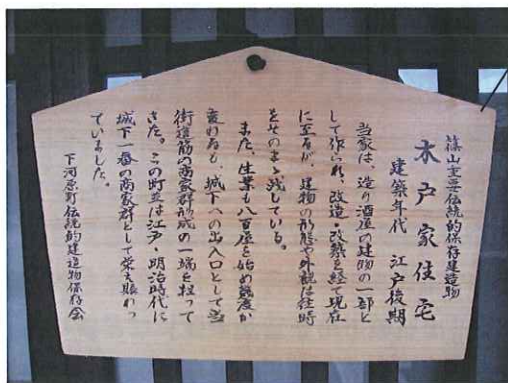 篠山重要伝統的保存建造物
木戸家住宅
建築年代 江戸後期
当家は、造り酒屋の建物の一部と
して作られ、改造・改築を経て現在
に至るが、建物の形態や外観は往時
をそのまゝ残している。
また、生業も八百屋を始め幾度か
変わるも、城下への出入口として当
街道筋の商家群形成の一端を担って
きた。この町並は江戸・明治時代に
城下一番の商家群として栄え賑わっ
ていました。
下河原町伝統的建造物保存会